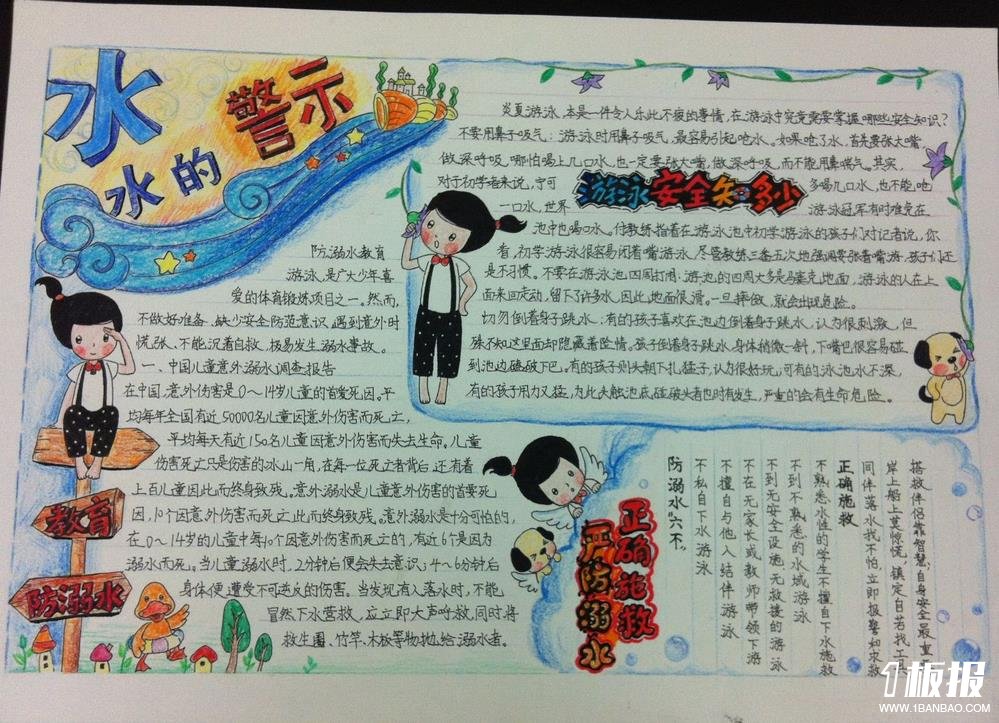 水
水的
警示
防溺水教育
游泳,是广大少年喜
爱的体育锻炼项目之一。然而,
不做好准备、缺少安全防范意识,遇到意外时
慌张、不能沉着自救,极易发生溺水事故。
一、中国儿童意外溺水调查报告
在中国,意外伤害是0～14岁儿童的首要死因。平
均每年全国有近50000名儿童因意外伤害而死亡,
平均每天有近150名儿童因意外伤害而失去生命。儿童
伤害死亡只是伤害的冰山一角,在每一位死亡者背后,还有着
上百儿童因此而终身致残。意外溺水是儿童意外伤害的首要死
因,10个因意外伤害而死亡
此而终身致残。意外溺水是十分可怕的,
在0～14岁的儿童中每10个因意外伤害而死亡的,有近6个是因为
溺水而死。当儿童溺水时,2分钟后便会失去意识;4～6分钟后
身体便遭受不可逆反的伤害。当发现有人落水时,不能
冒然下水营救,应立即大声呼救,同时将
救生圈、竹竿、木板等物抛给溺水者。
教育
防溺水
炎夏游泳,本是一件令人乐此不疲的事情,在游泳中究竟需要掌握哪些安全知识?
不要用鼻子吸气:游泳时用鼻子吸气,最容易引起呛水。如果呛了水,首先要张大嘴,
做深呼吸,哪怕喝上几口水,也一定要张大嘴,做深呼吸,而不能用鼻喘气。其实,
对于初学者来说,宁可
多喝几口水,也不能呛
一口水,世界
游泳冠军有时难免在
游泳安全知多少
池中也喝口水。付教练指着在游泳池中初学游泳的孩子们对记者说,你
看,初学游泳很容易闭着嘴游泳,尽管教练三番五次地强调要张着嘴游,孩子们还
是不习惯。不要在游泳池四周打闹:游池的四周大多是马赛克地面,游泳的人在上
面来回走动,留下了许多水,因此,地面很滑。一旦摔倒,就会出现危险。
切勿倒着身子跳水:有的孩子喜欢在池边倒着身子跳水,认为很刺激,但
殊不知这里面却隐藏着险情。孩子倒着身子跳水,身体稍微一斜,下嘴巴很容易碰
到池边磕破下巴,有的孩子则头朝下扎猛子,认为很好玩,可有的泳池水不深,
有的孩子用力又猛,为此头触池底,碰破头者也时有发生,严重的会有生命危险。
正确施救
严防溺水
防溺水“六不”
不私自下水游泳
不擅自与他人结伴游泳
不在无家长或教师带领下游泳
不到无安全设施、无救援的游泳
不到不熟悉的水域游泳
不熟悉水性的学生不擅自下水施救
正确施救
同伴落水我不怕,立即报警如求救
岸上船上莫惊慌,镇定自若找工具
搭救伴侣靠智慧,自身安全最重
1板报
WWW.1BANBAO.COM